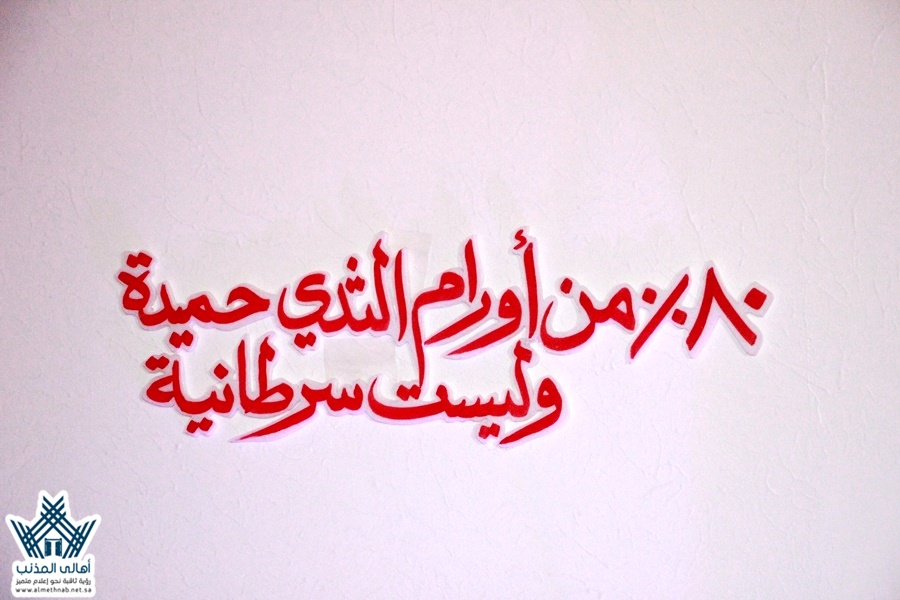 ٨٠٪ من أورام الثدي حميدة
وليست سرطانية
أهالي المذنب
رؤية ثاقبة نحو إعلام متميز
www.almethnab.net.sa